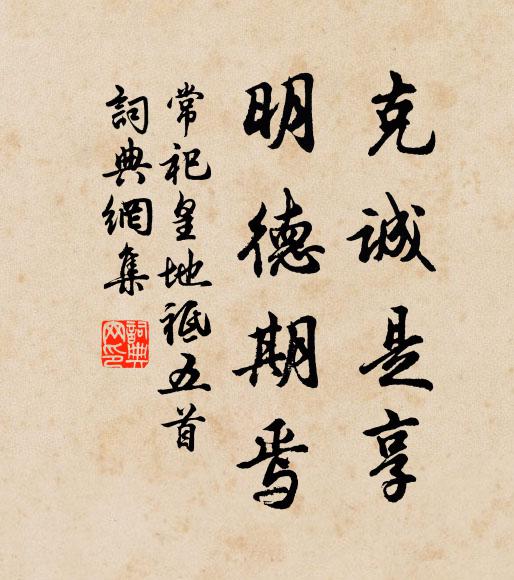 克诚是享
明德期焉
常祀皇地祇五首
詞典網集
詞典
网印